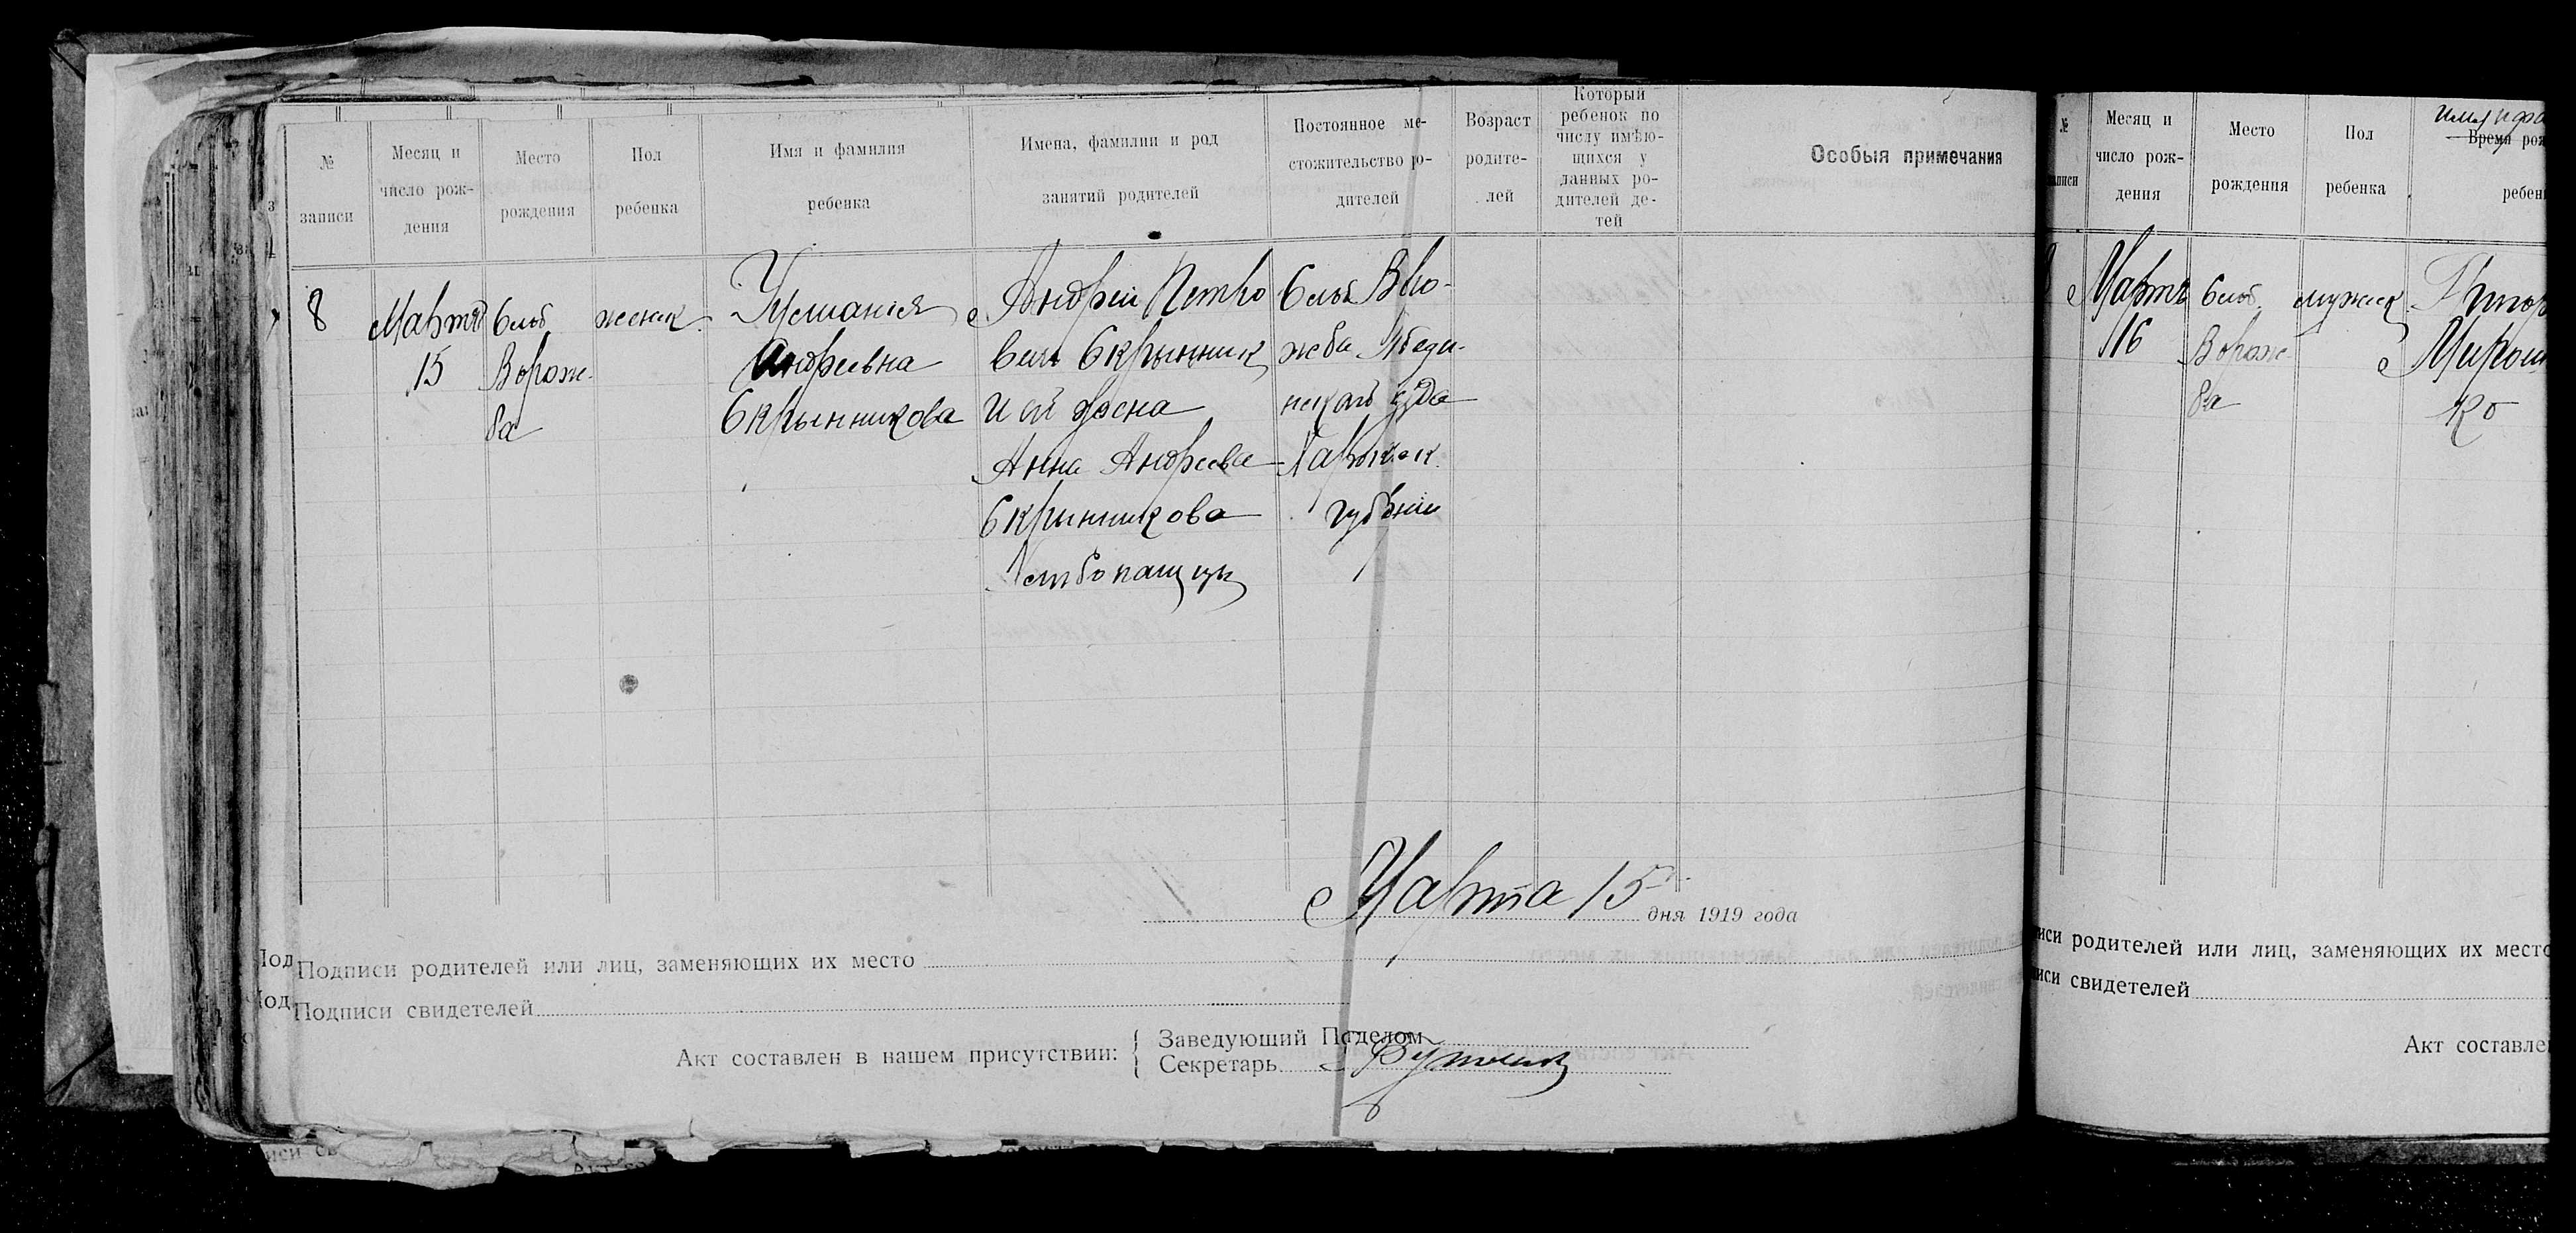 №
записи
Месяц и
число рож-
дения
Место
рождения
Пол
ребенка
Имя и фамилия
ребенка
Имена, фамилии и род
занятий родителей
Постоянное ме-
стожительство ро-
дителей
Возраст
родите-
лей
Который
ребенок по
числу имѣю-
щихся у
данных ро-
дителей де-
тей
Особыя примечания
8
Марта
15
Слоб
Ворож-
ба
женск.
Андреевна
Скрынникова
Андрей Петро
вич Скрынник
и его жена
Анна Андреева
Скрынникова
Слоб Воро-
жба Лебеди-
Харьк
губернии
Марта 15
дня 1919 года
Подписи родителей или лиц, заменяющих их место
Подписи свидетелей
Акт составлен в нашем присутствии:
Заведующий Подделом
Секретарь
№
записи
Месяц и
число рож-
дения
Место
рождения
Пол
ребенка
Время рож
ребен
Марта
16
Слоб
Ворож-
ба
мужск
Григор
Мирош
ко
иси родителей или лиц, заменяющих их место
иси свидетелей
Акт составле